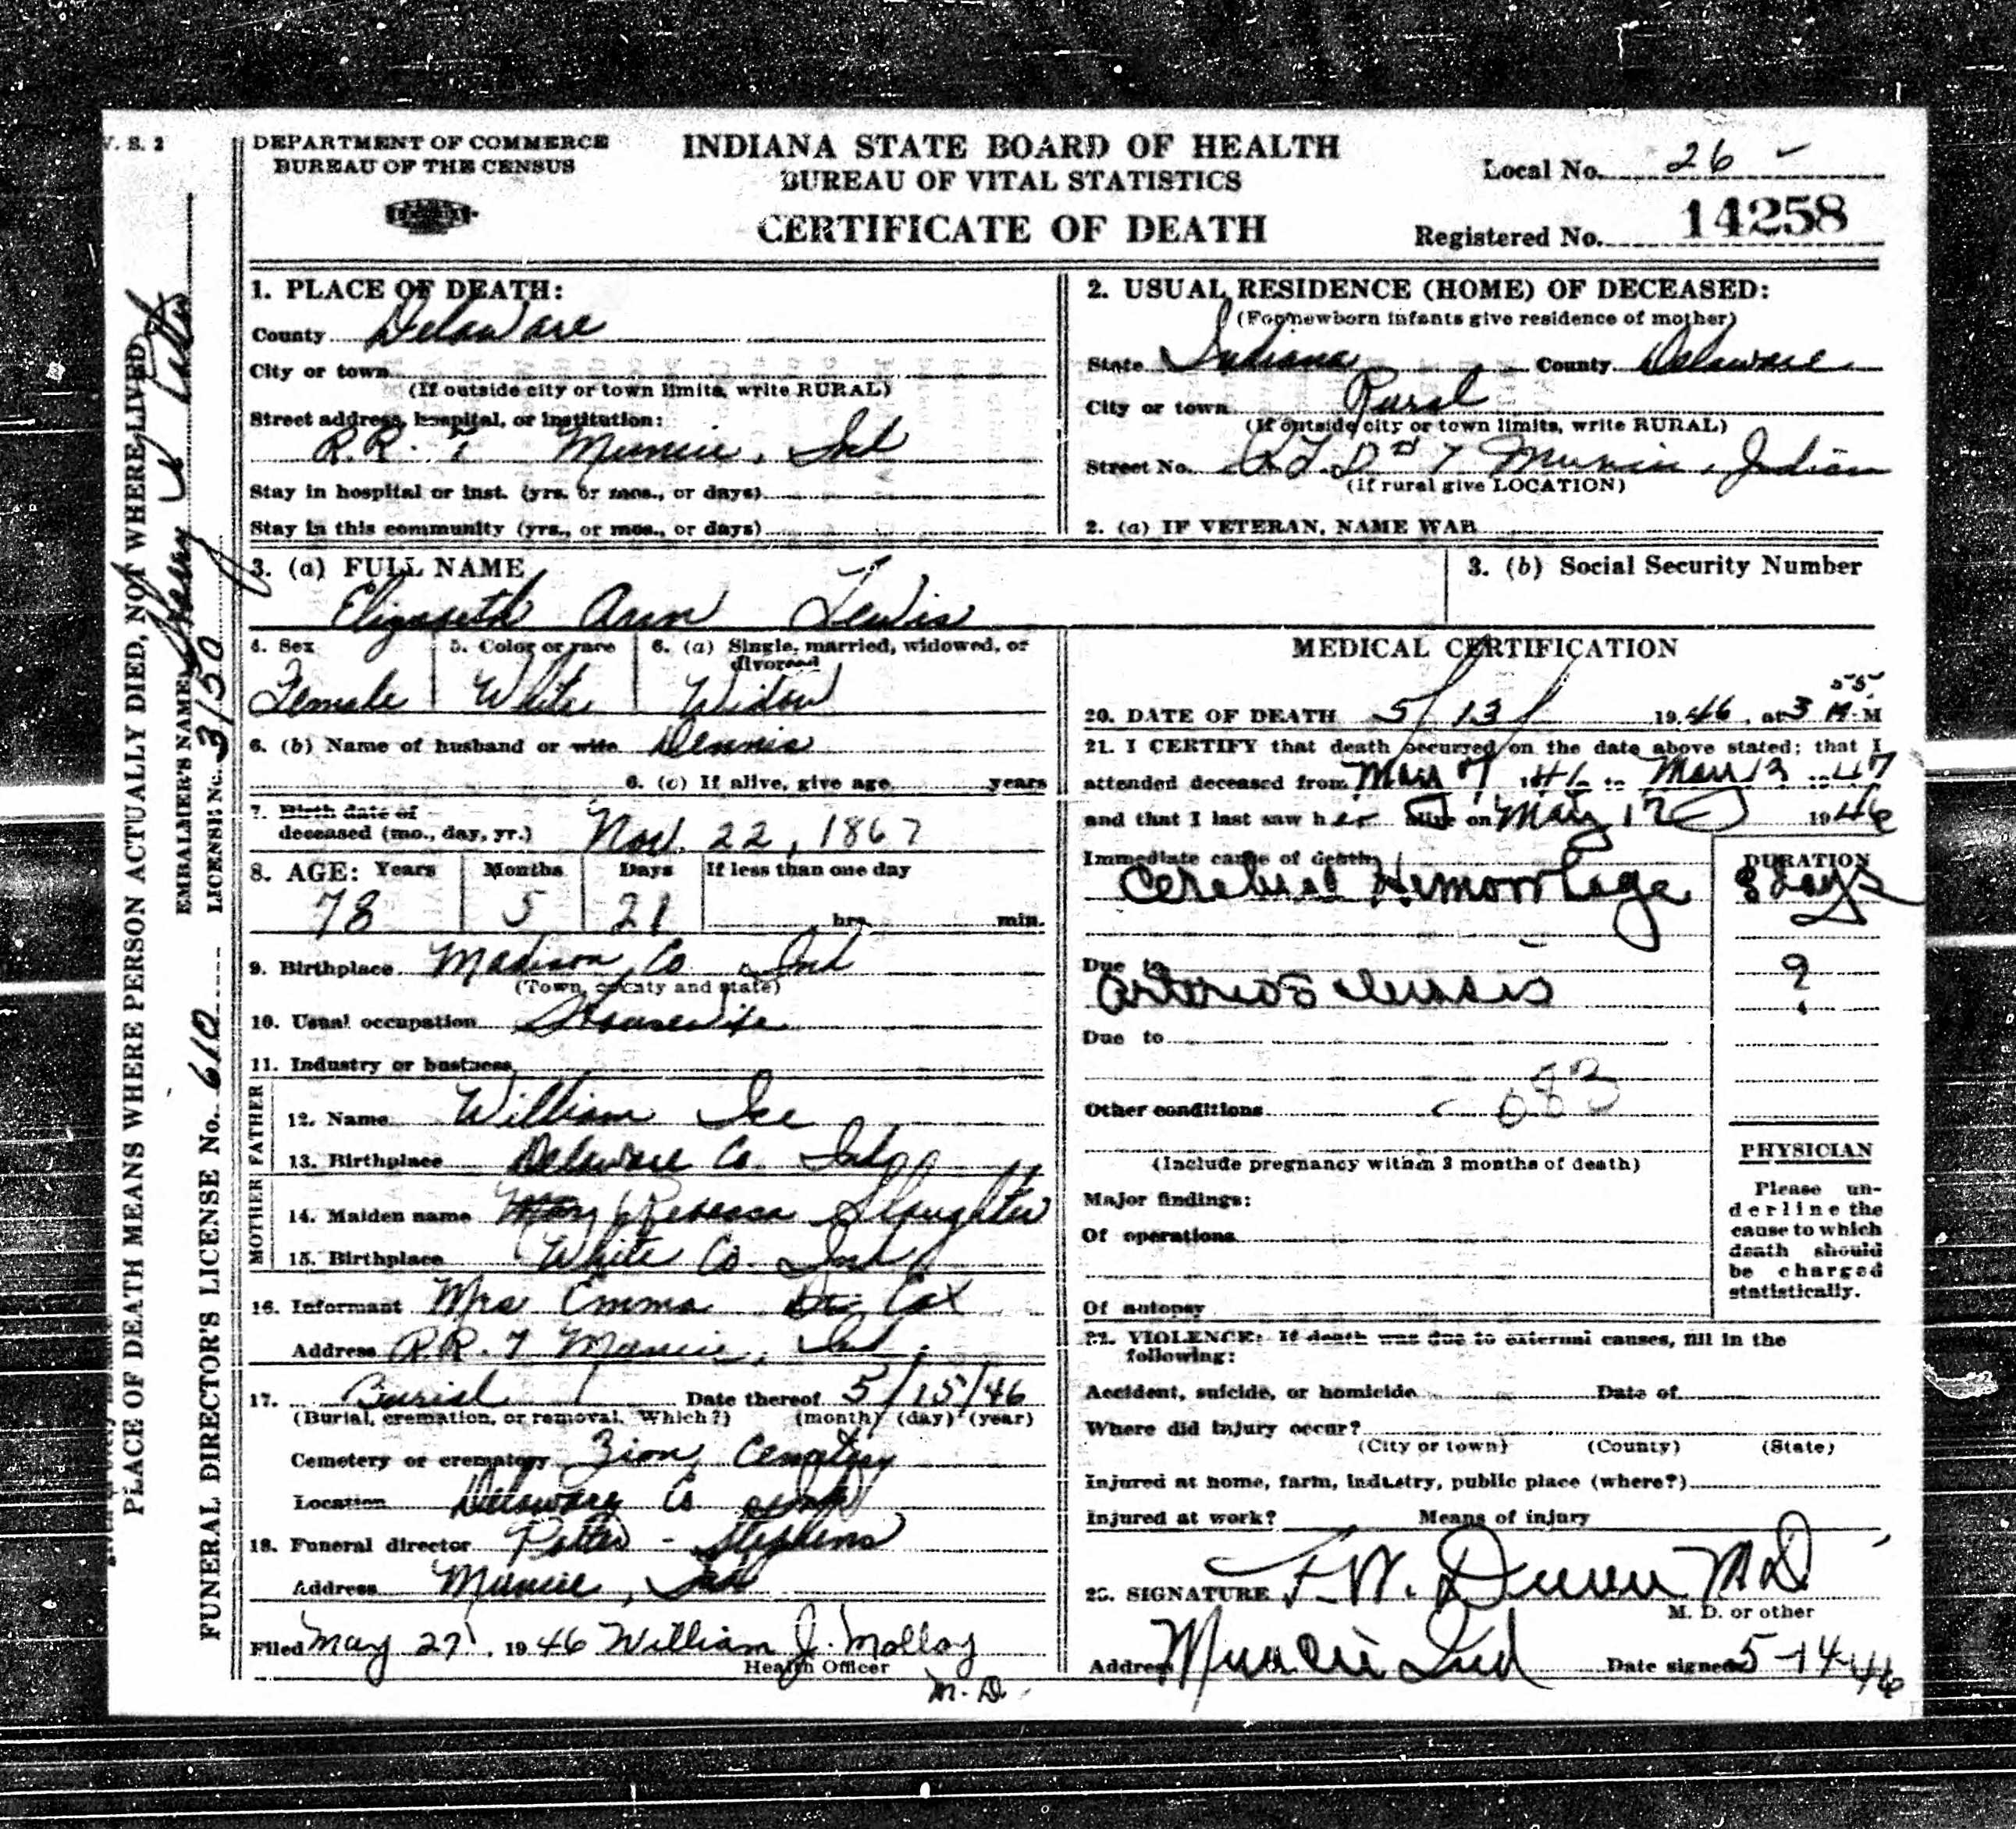 V. S. 2
DEPARTMENT OF COMMERCE
BUREAU OF THE CENSUS
INDIANA STATE BOARD OF HEALTH
BUREAU OF VITAL STATISTICS
CERTIFICATE OF DEATH
Local No. 26
Registered No. 14258
PLACE OF DEATH MEANS WHERE PERSON ACTUALLY DIED, NOT WHERE LIVED
EMBALMER'S NAME
LICENSE No. 3150
FUNERAL DIRECTOR'S LICENSE No. 610
1. PLACE OF DEATH:
County Delaware
City or town
(If outside city or town limits, write RURAL)
Street address, hospital, or institution:
R.R. 7 Muncie, Ind
Stay in hospital or inst. (yrs. or mos., or days)
Stay in this community (yrs., or mos., or days)
2. USUAL RESIDENCE (HOME) OF DECEASED:
(For newborn infants give residence of mother)
State Indiana County Delaware
City or town Rural
(If outside city or town limits, write RURAL)
Street No. 7 Muncie, Indian
(If rural give LOCATION)
2. (a) IF VETERAN, NAME WAR
3. (a) FULL NAME
Elizabeth Ann Lewis
3. (b) Social Security Number
4. Sex
Female
5. Color or race
White
6. (a) Single, married, widowed, or divorced
Widow
6. (b) Name of husband or wife Dennis
6. (c) If alive, give age years
7. Birth date of
deceased (mo., day, yr.) Nov. 22, 1867
8. AGE: Years Months Days If less than one day
78 5 21 hrs. min.
9. Birthplace Madison Co Ind
(Town, county and state)
10. Usual occupation Housewife
11. Industry or business
FATHER
12. Name William Ice
13. Birthplace Delaware Co. Ind
MOTHER
14. Maiden name Mary Rebecca Slaughter
15. Birthplace White Co. Ind
16. Informant Mrs Emma Cox
Address R.R. 7 Muncie, Ind.
17. Burial Date thereof 5/15/46
(Burial, cremation, or removal. Which?) (month) (day) (year)
Cemetery or crematory Zion Cemetery
Location Delaware Co Ind
18. Funeral director Potter - Stephens
Address Muncie, Ind
Filed May 27, 1946 William J. Molloy
Health Officer
M. D.
MEDICAL CERTIFICATION
20. DATE OF DEATH 5/13/ 1946, at 3 55 M
21. I CERTIFY that death occurred on the date above stated; that I
attended deceased from May 7 1946 to May 13 1947
and that I last saw her alive on May 12 1946
Immediate cause of death
Cerebral Hemorrhage
DURATION
8 days
Due to
Arteriosclerosis
?
Due to
083
Other conditions
(Include pregnancy within 3 months of death)
Major findings:
Of operations
Of autopsy
PHYSICIAN
Please un-
derline the
cause to which
death should
be charged
statistically.
22. VIOLENCE: If death was due to external causes, fill in the
following:
Accident, suicide, or homicide Date of
Where did injury occur?
(City or town) (County) (State)
Injured at home, farm, industry, public place (where?)
Injured at work? Means of injury
23. SIGNATURE F. W. M D
M. D. or other
Address Muncie Ind Date signed 5-14-46